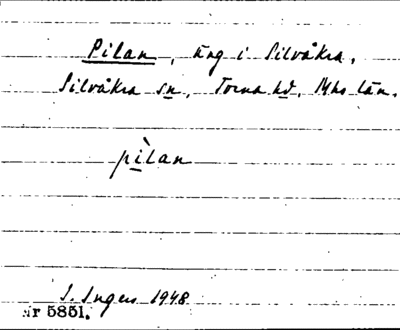 Pilan, äng i Silvåkra.
Silvåkra sn, Torna hd, Mhs län.
pìlan
I. Ingers 1948
Nr 5851.